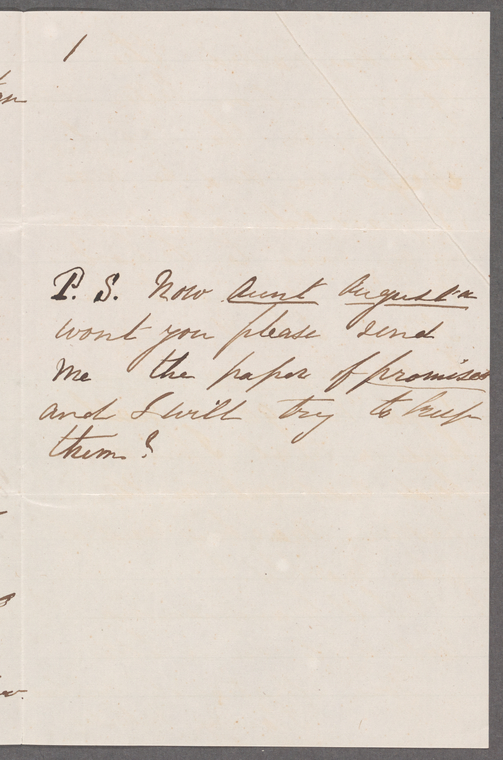 P. S. Now Aunt Augusta
wont you please send
me the paper of promises
and I will try to keep
them?